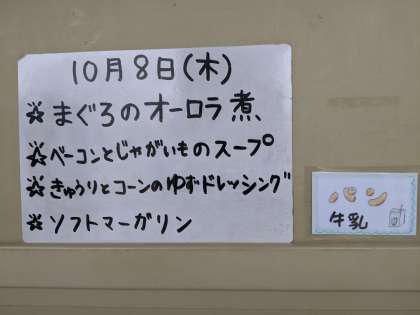 10月8日(木)
☆まぐろのオーロラ煮
☆ベーコンとじゃがいものスープ
☆きゅうりとコーンのゆずドレッシング
☆ソフトマーガリン
パン
牛乳